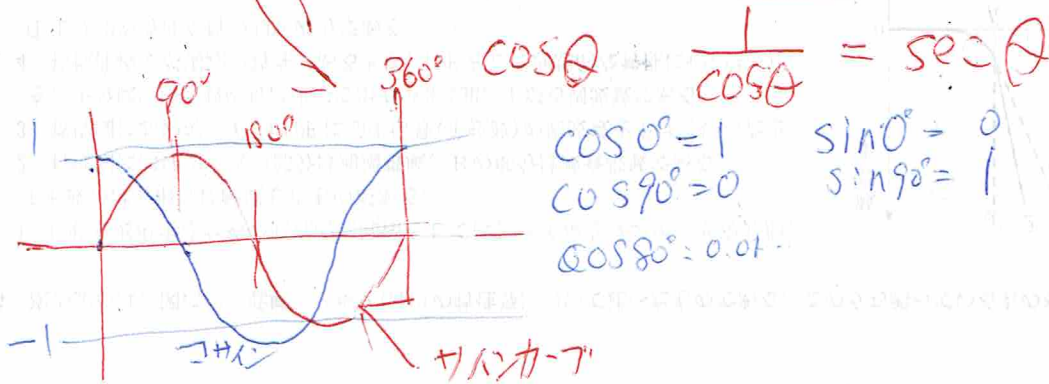 cosθ 1/cosθ = secθ
90° 180° 360°
1
cos0°=1 sin0°=0
cos90°=0 sin90°=1
cos80°=0.01
-1
コサイン
サインカーブ